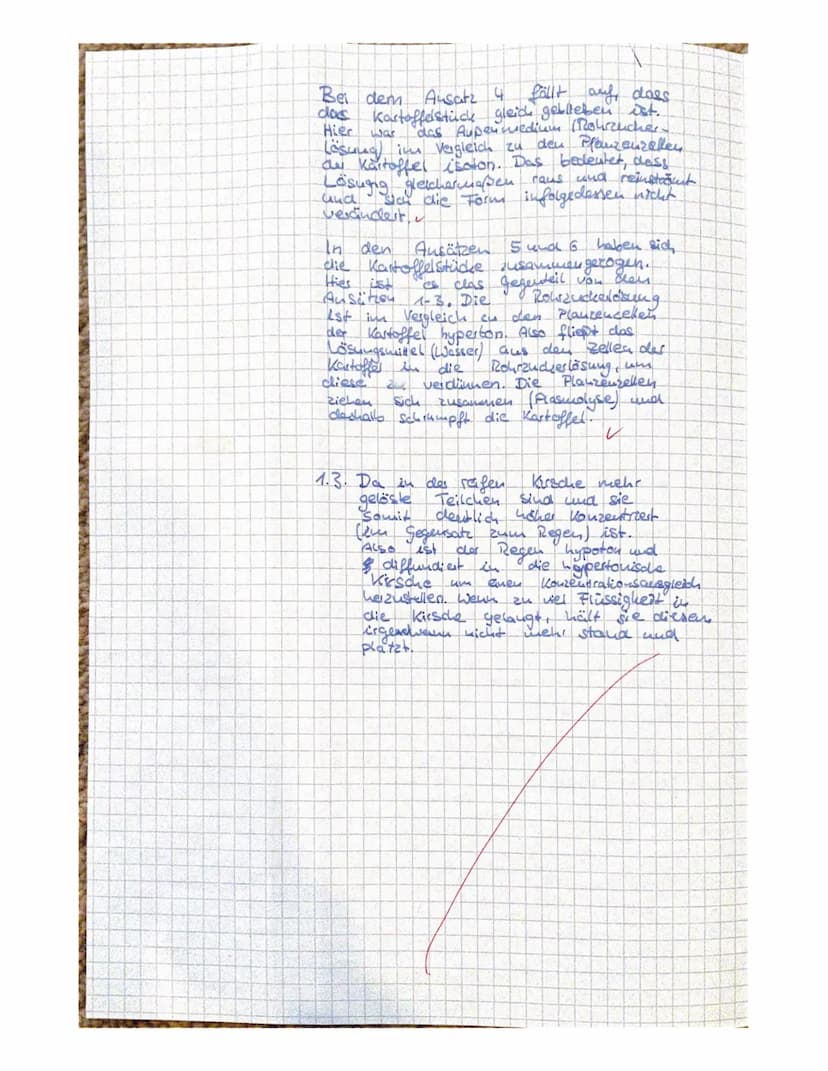 Bei dem Ansatz 4 fällt auf, dass
das Kartoffelstück gleich geblieben ist.
Hier war das Außenmedium (Rohrzucker-
Lösung) im Vegleich zu den Pflanzenzellen
der Kartoffel isoton. Das bedeutet, dass
Lösung gleichermaßen raus und reinströmt
und sich die Form infolgedessen nicht
verändert.
In den Ansätzen 5 und 6 haben sich
die Kartoffelstücke zusammengezogen.
Hier ist es das Gegenteil von den
Ansätzen 1-3. Die Rohrzuckerlösung
ist im Vergleich zu den Planzenzellen
der Kartoffel hyperton. Also fließt das
Lösungsmittel (Wasser) aus den Zellen der
Kartoffel in die Rohrzuckerlösung, um
diese zu verdünnen. Die Planzenzellen
ziehen sich zusammen (Plasmolyse) und
deshalb schrumpft die Kartoffel.
1.3. Da in der reifen Kirsche mehr
gelöste Teilchen sind und sie
somit deutlich höher konzentriert
(im Gegensatz zum Regen) ist.
Also ist der Regen hypoton und
diffundiert in die hypertonische
Kirsche um einen Konzentrationsausgleich
herzustellen. Wenn zu viel Flüssigkeit in
die Kirsche gelangt, hält sie diesem
irgendwann nicht mehr stand und
platzt.